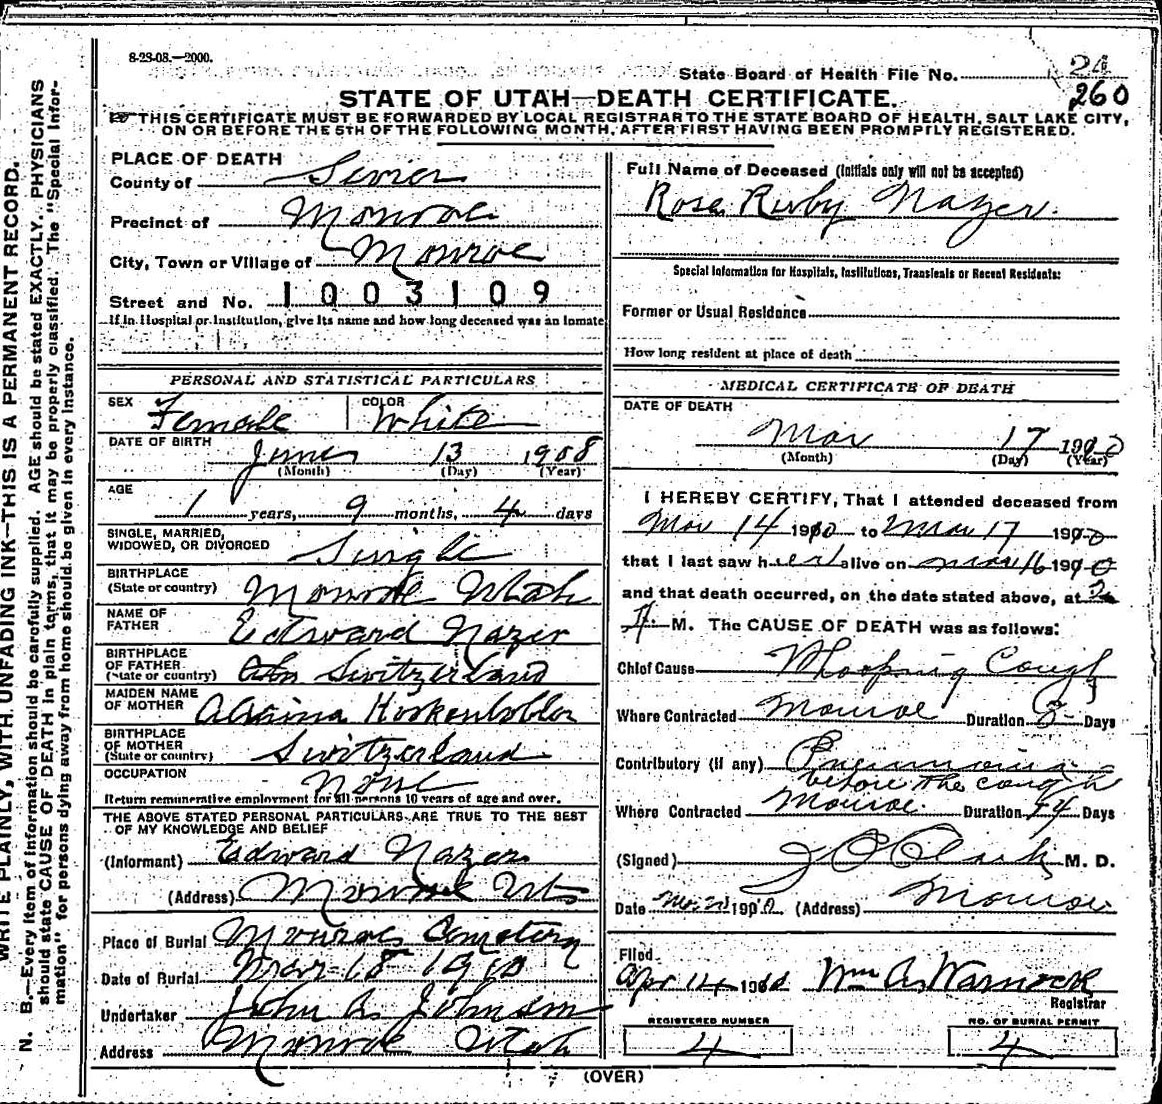 8-23-08.—2000.
State Board of Health File No. 24
260
STATE OF UTAH—DEATH CERTIFICATE.
THIS CERTIFICATE MUST BE FORWARDED BY LOCAL REGISTRAR TO THE STATE BOARD OF HEALTH, SALT LAKE CITY,
ON OR BEFORE THE 5TH OF THE FOLLOWING MONTH, AFTER FIRST HAVING BEEN PROMPTLY REGISTERED.
WRITE PLAINLY, WITH UNFADING INK—THIS IS A PERMANENT RECORD.
N. B.—Every item of information should be carefully supplied. AGE should be stated EXACTLY. PHYSICIANS
should state CAUSE OF DEATH in plain terms, that it may be properly classified. The "Special Infor-
mation" for persons dying away from home should be given in every instance.
PLACE OF DEATH
County of Sevier
Precinct of Monroe
City, Town or Village of Monroe
Street and No. 1003109
If in Hospital or Institution, give its name and how long deceased was an inmate
PERSONAL AND STATISTICAL PARTICULARS
SEX Female COLOR White
DATE OF BIRTH
June 13 1908
(Month) (Day) (Year)
AGE
1 years, 9 months, 4 days
SINGLE, MARRIED,
WIDOWED, OR DIVORCED Single
BIRTHPLACE
(State or country) Monroe Utah
NAME OF
FATHER Edward Nazer
BIRTHPLACE
OF FATHER
(State or country) Switzerland
MAIDEN NAME
OF MOTHER
BIRTHPLACE
OF MOTHER
(State or country) Switzerland
OCCUPATION None
Return remunerative employment for all persons 10 years of age and over.
THE ABOVE STATED PERSONAL PARTICULARS ARE TRUE TO THE BEST
OF MY KNOWLEDGE AND BELIEF
(Informant) Edward Nazer
(Address) Monroe Ut
Place of Burial Monroe Cemetery
Date of Burial Mar 18 1910
Undertaker John A. Johnson
Address Monroe Utah
Full Name of Deceased (Initials only will not be accepted)
Rosa Ruby Nazer.
Special Information for Hospitals, Institutions, Transients or Recent Residents:
Former or Usual Residence
How long resident at place of death
MEDICAL CERTIFICATE OF DEATH
DATE OF DEATH
Mar 17 1910
(Month) (Day) (Year)
I HEREBY CERTIFY, That I attended deceased from
Mar 14 1910 to Mar 17 1910
that I last saw her alive on Mar 16 1910
and that death occurred, on the date stated above, at 2
A. M. The CAUSE OF DEATH was as follows:
Chief Cause Whooping Cough
Where Contracted Monroe Duration 8 Days
Contributory (if any) Pneumonia
before the cough
Where Contracted Monroe. Duration 4 Days
(Signed) J C Clark M. D.
Date 1910 (Address) Monroe
Filed
Apr 14 1910 Wm A. Warnock
Registrar
REGISTERED NUMBER
4
NO. OF BURIAL PERMIT
4
(OVER)